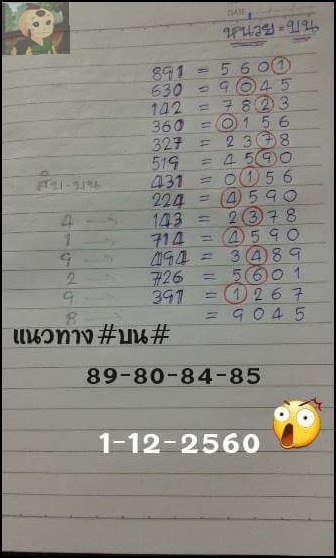 DATE
หน่วย=บน
891 = 5601
630 = 9045
142 = 7823
360 = 0156
327 = 2378
519 = 4590
สิบ-บน 431 = 0156
224 = 4590
4 → 143 = 2378
1 → 714 = 4590
9 → 494 = 3489
2 → 726 = 5601
9 → 391 = 1267
8 → = 9045
แนวทาง#บน#
89-80-84-85
1-12-2560